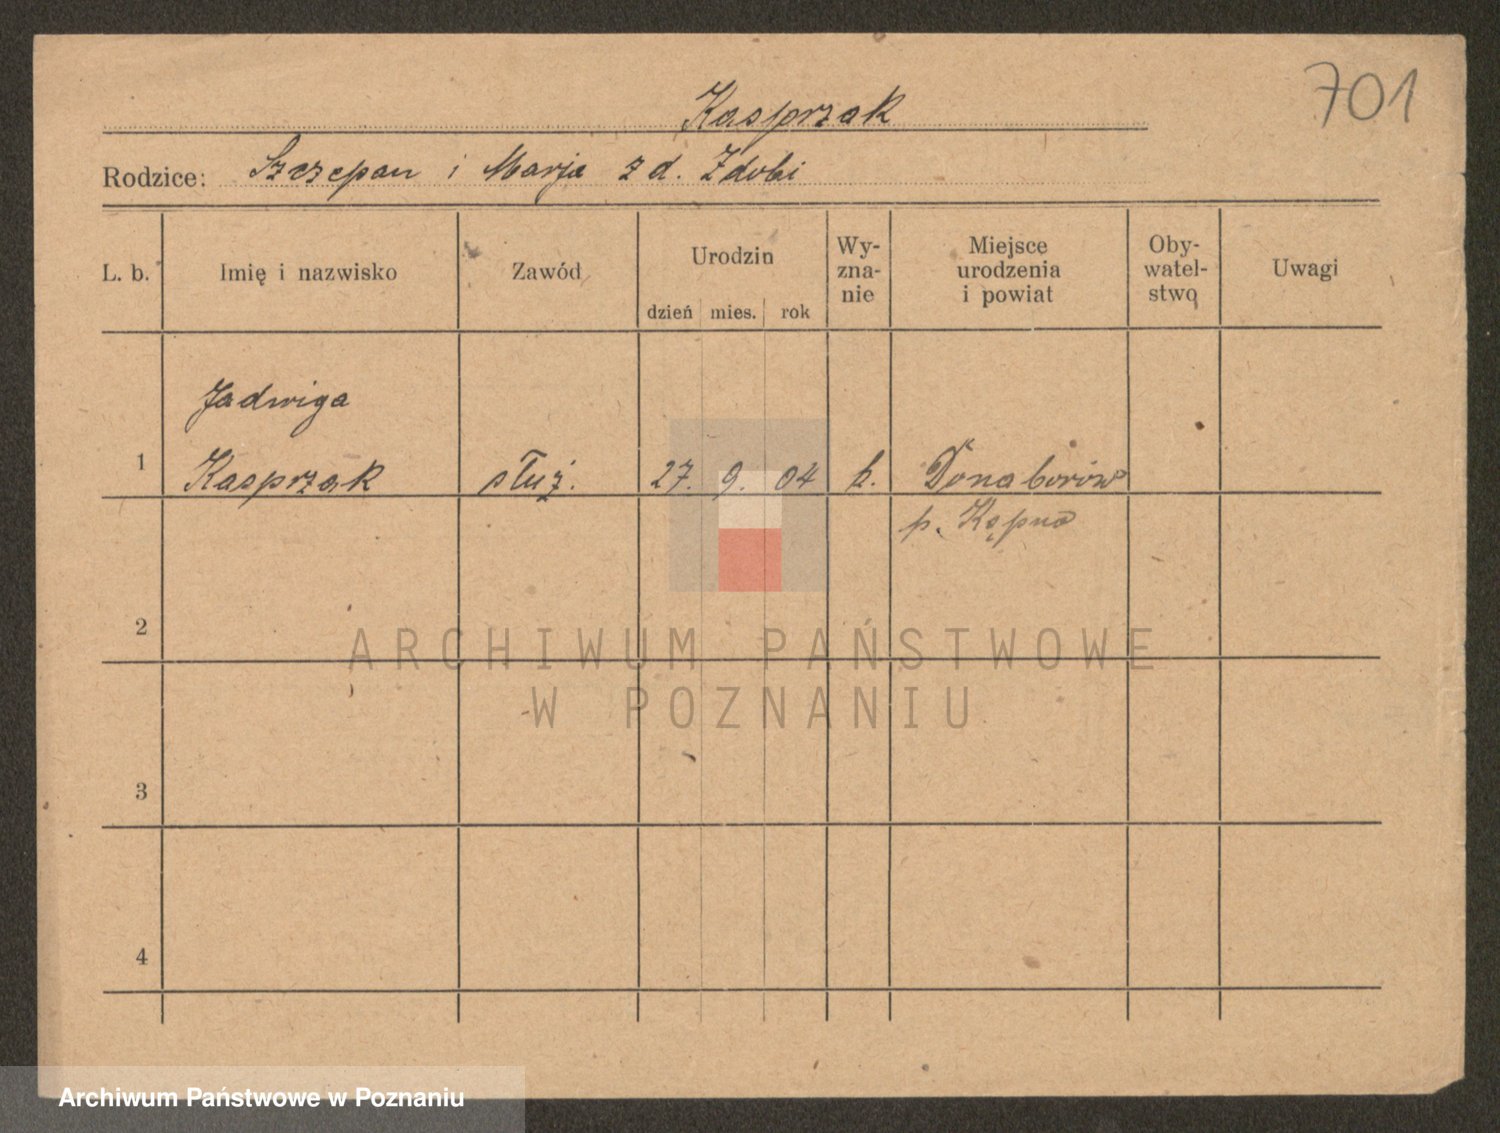 701
Kasprzak
Rodzice: Szczepan i Marja z d. Zdobi
L. b.
Imię i nazwisko
Zawód
Urodzin
dzień
mies.
rok
Wy-
zna-
nie
Miejsce
urodzenia
i powiat
Oby-
watel-
stwo
Uwagi
Jadwiga
1 Kasprzak służ. 27. 9. 04 k. Donaborów
p. Kępno
2
3
4
ARCHIWUM PAŃSTWOWE
W POZNANIU
Archiwum Państwowe w Poznaniu